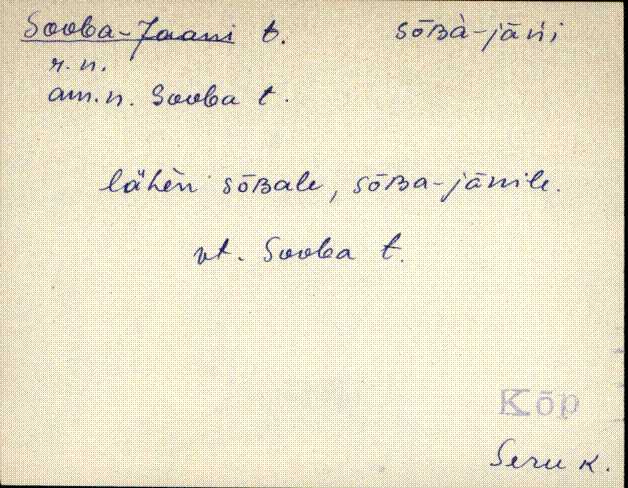 Sooba-Jaani t. sōʙà-jāńi
r.n.
am.n. Sooba t.
lähèn sōʙale, sōʙa-jānile.
vt. Sooba t.
Kõp
Seru k.